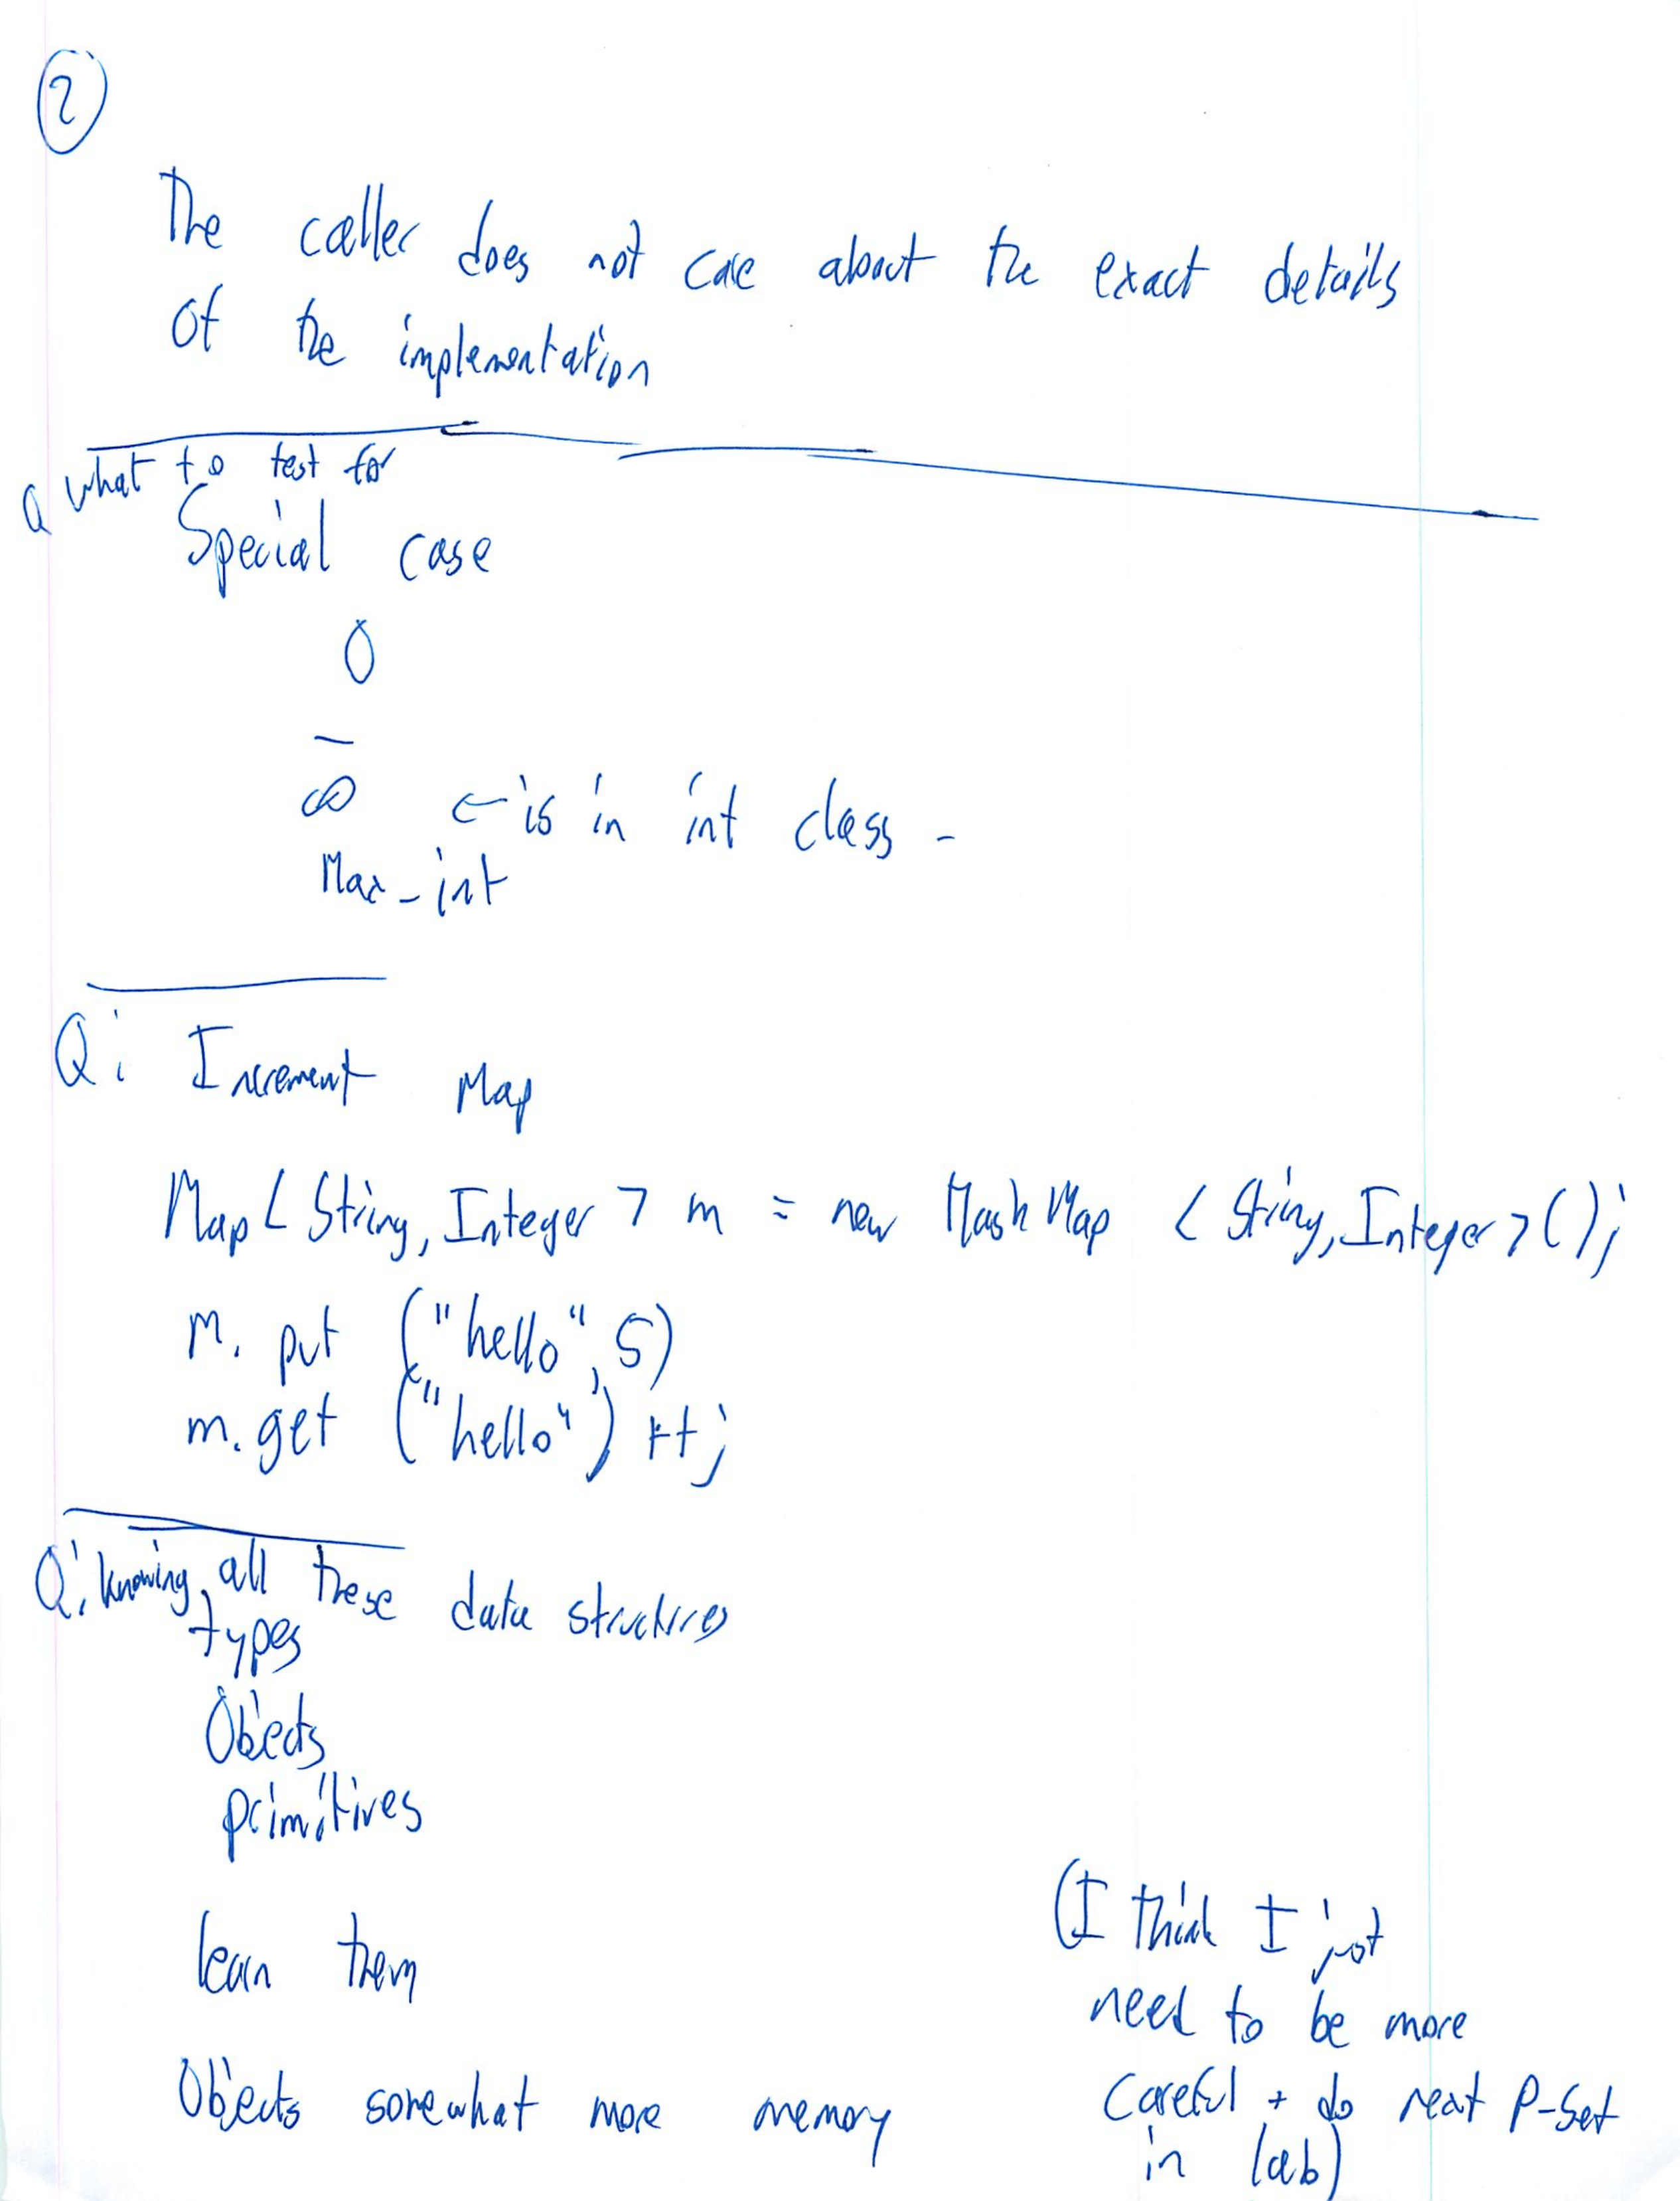 2
The caller does not care about the exact details
of the implementation
Q what to test for
Special case
0
-
∞ ← is in int class -
Max_int
Q: Increment Map
Map < String, Integer > m = new HashMap < String, Integer > ();
m. put ("hello", 5)
m. get ("hello") ++;
Q: knowing all these data structures
types
Objects
primitives
learn them
Objects somewhat more memory
(I think I just
need to be more
careful + do next P-Set
in lab)